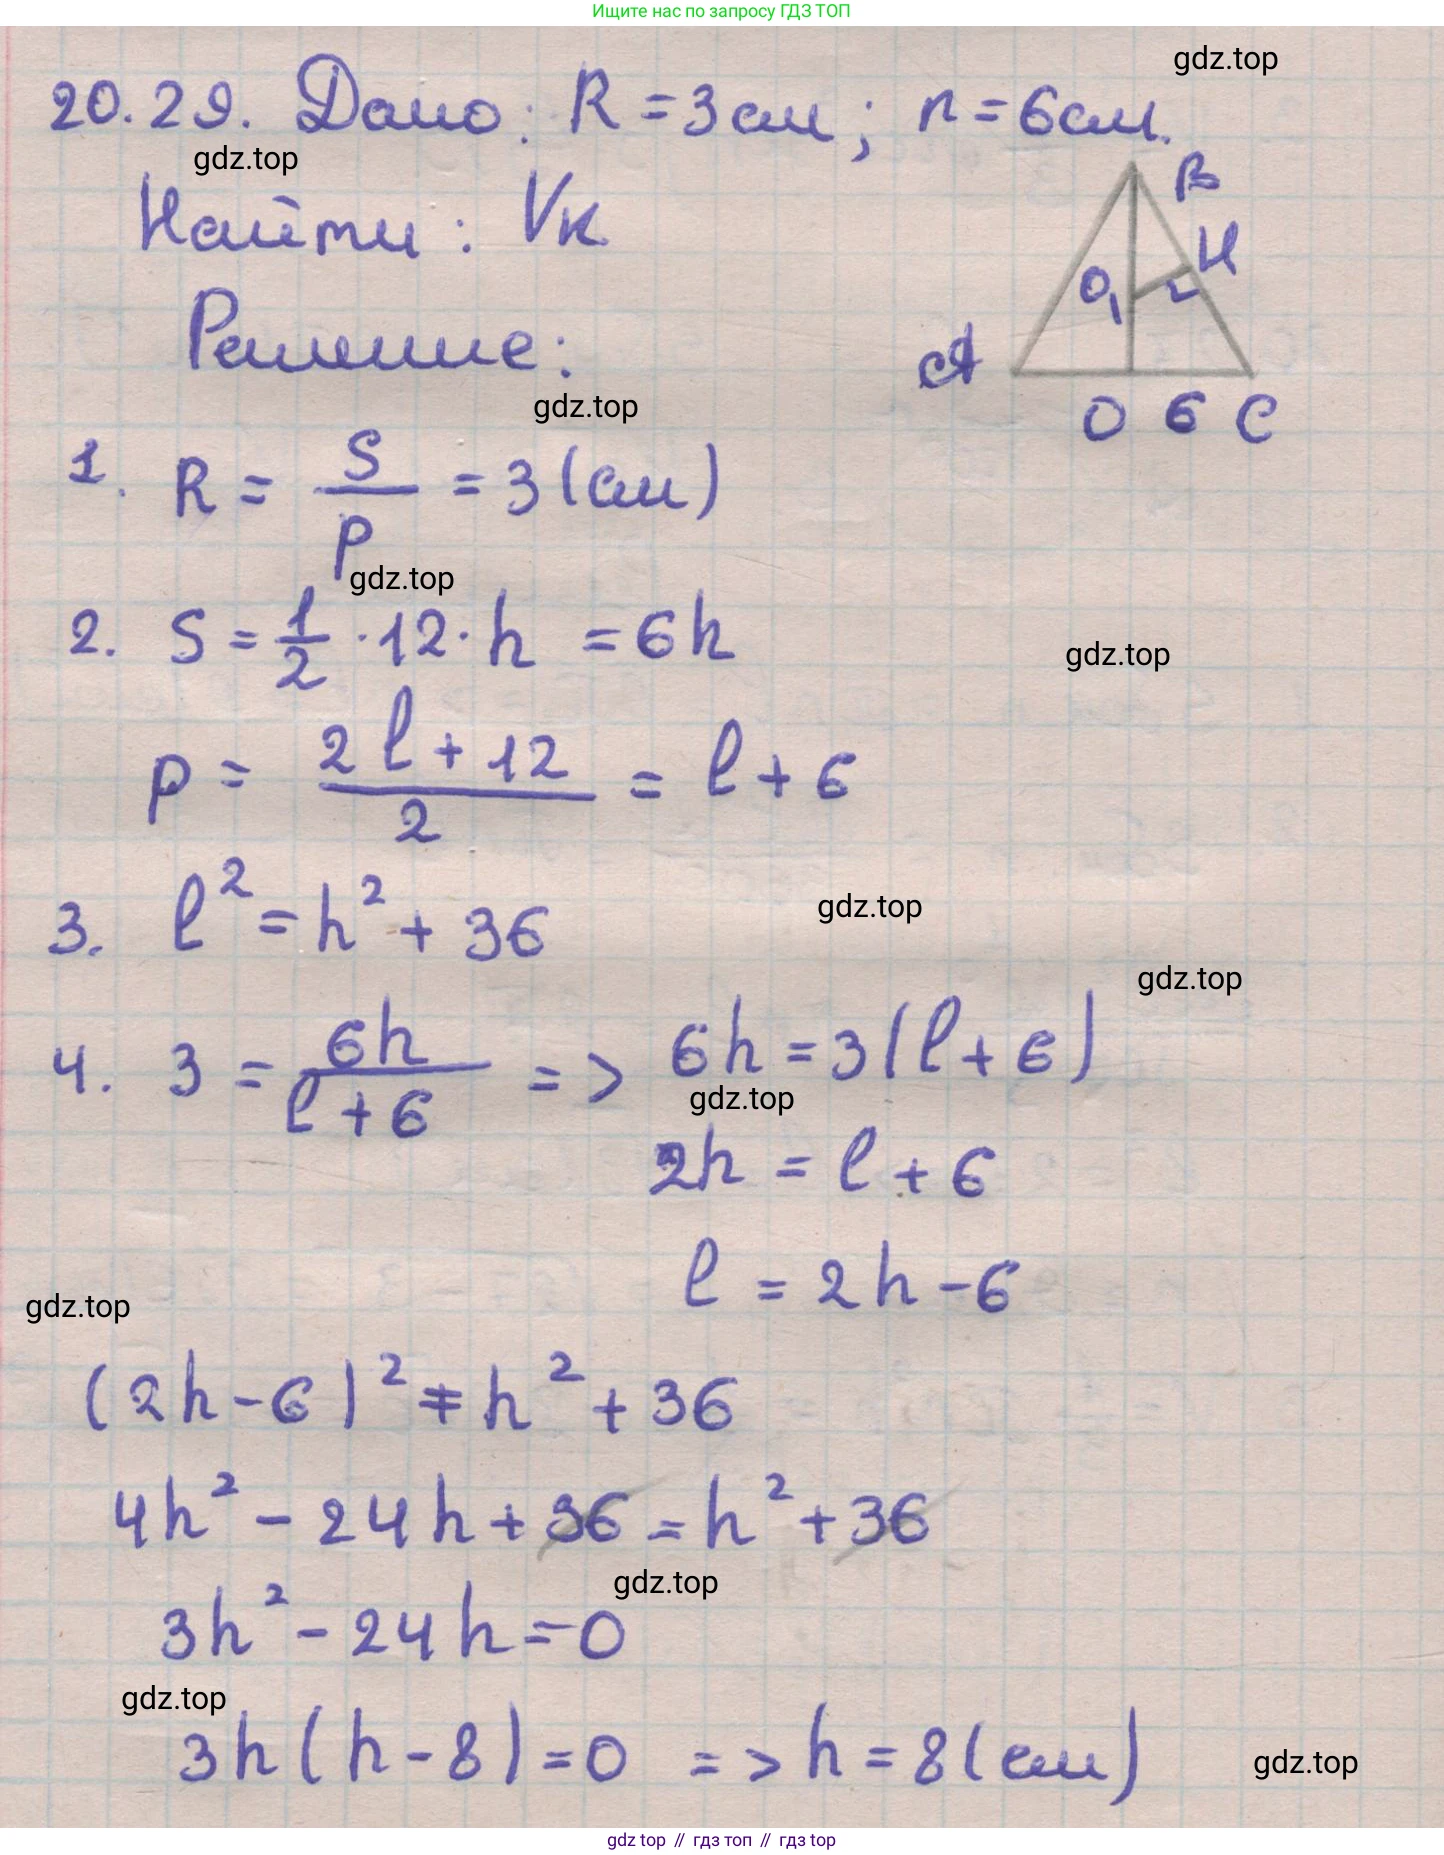 Ищите нас по запросу ГДЗ ТОП
gdz.top
20.29. Дано: R = 3 см; r = 6 см.
gdz.top
Найти: Vк
B
H
O₁ r
Решение:
A
O 6 C
gdz.top
1. R = S/p = 3 (см)
gdz.top
2. S = 1/2 · 12 · h = 6h
gdz.top
p = (2l + 12)/2 = l + 6
3. l² = h² + 36
gdz.top
gdz.top
4. 3 = 6h/(l + 6) => 6h = 3(l + 6)
gdz.top
2h = l + 6
l = 2h - 6
gdz.top
(2h - 6)² = h² + 36
4h² - 24h + 36 = h² + 36
gdz.top
3h² - 24h = 0
gdz.top
3h(h - 8) = 0 => h = 8 (см)
gdz.top
gdz top // гдз топ // gdz top